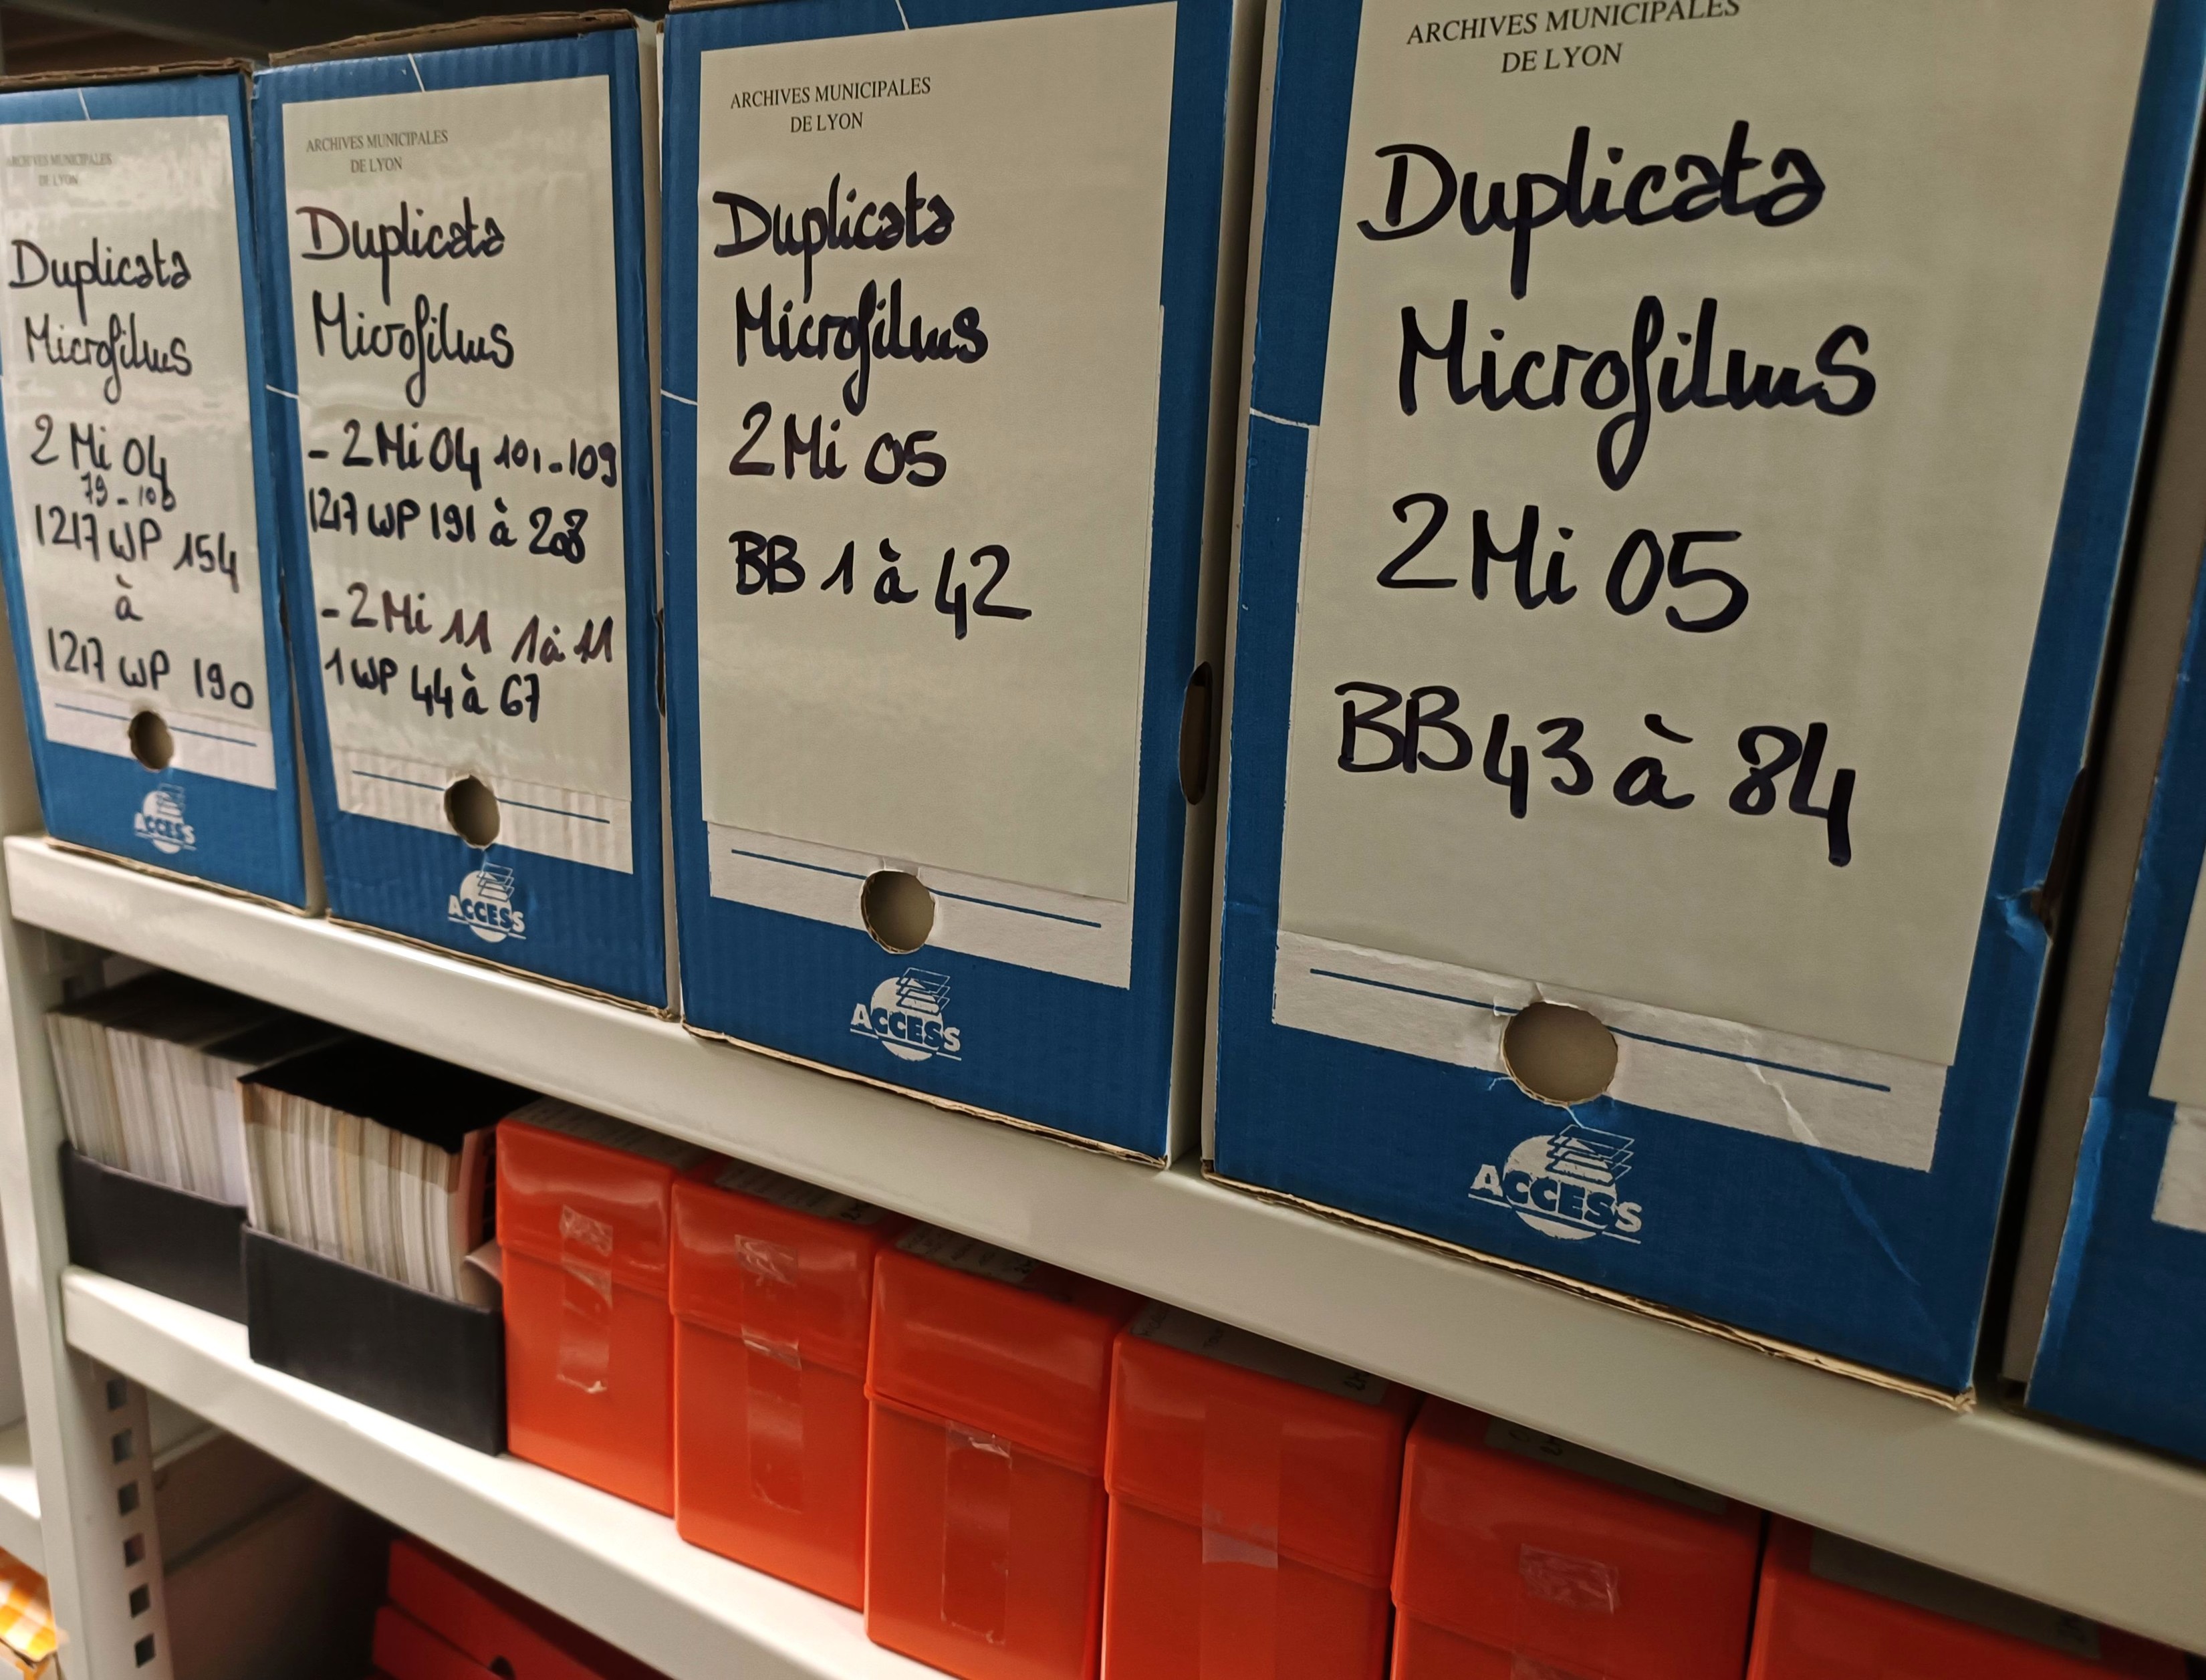 ARCHIVES MUNICIPALES
DE LYON
Duplicata
Microfilms
2 Mi 04
79-100
1217 WP 154
à
1217 WP 190
ACCESS
ARCHIVES MUNICIPALES
DE LYON
Duplicata
Microfilms
- 2 Mi 04 101-109
1217 WP 191 à 208
- 2 Mi 11 1 à 11
1 WP 44 à 67
ACCESS
ARCHIVES MUNICIPALES
DE LYON
Duplicata
Microfilms
2 Mi 05
BB 1 à 42
ACCESS
ARCHIVES MUNICIPALES
DE LYON
Duplicata
Microfilms
2 Mi 05
BB 43 à 84
ACCESS